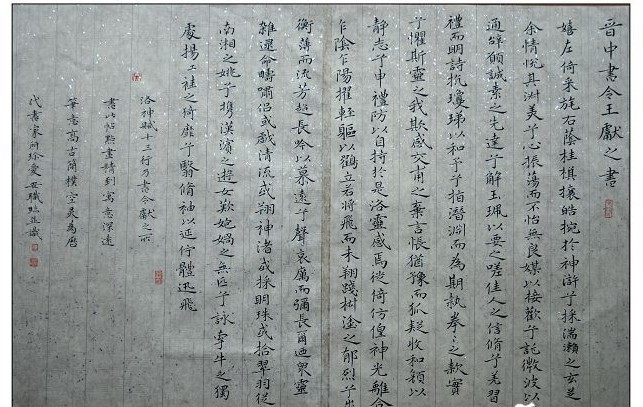 晉中書令王獻之書
嬉左倚采旄右蔭桂旗攘皓捥於神滸兮採湍瀨之玄芝
余情悅其淑美兮心振蕩而不怡無良媒以接歡兮託微波以
通辭願誠素之先達兮解玉珮以要之嗟佳人之信脩兮羌習
禮而明詩抗瓊珶以和予兮指潛淵而為期執拳〻之款實
兮懼斯靈之我欺感交甫之棄言悵猶豫而狐疑收和顏以
靜志兮申禮防以自持於是洛靈感焉徙倚仿偟神光離合
乍陰乍陽擢輕軀以鶴立若將飛而未翔踐椒塗之郁烈兮步
蘅薄而流芳超長吟以慕遠兮聲哀厲而彌長爾迺眾靈
雜遝命疇嘯侶或戲清流或翔神渚或採明珠或拾翠羽從
南湘之姚兮攜漢濱之遊女歎媧之無匹兮詠牽牛之獨
處揚袿之綺靡兮翳脩袖以延佇體迅飛
洛神賦十三行乃書令獻之所
書此帖點畫精到寓意深遠
筆意高古簡樸空靈為歷
代書家所珍愛世職臨並識